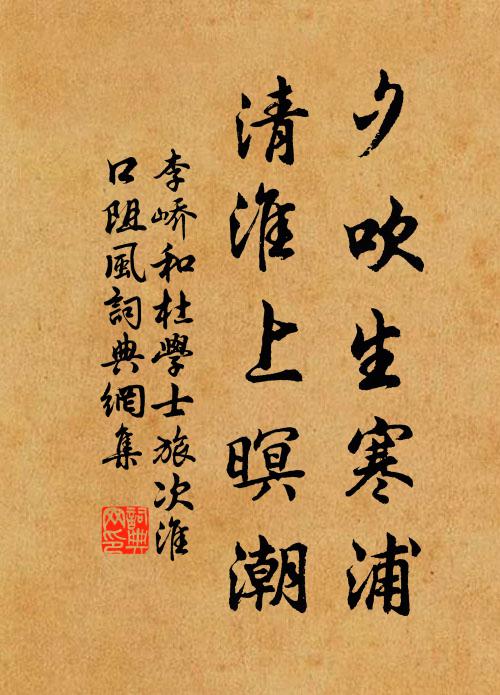 夕吹生寒浦
清淮上暝潮
李嶠和杜學士旅次淮
口阻風詞典網集